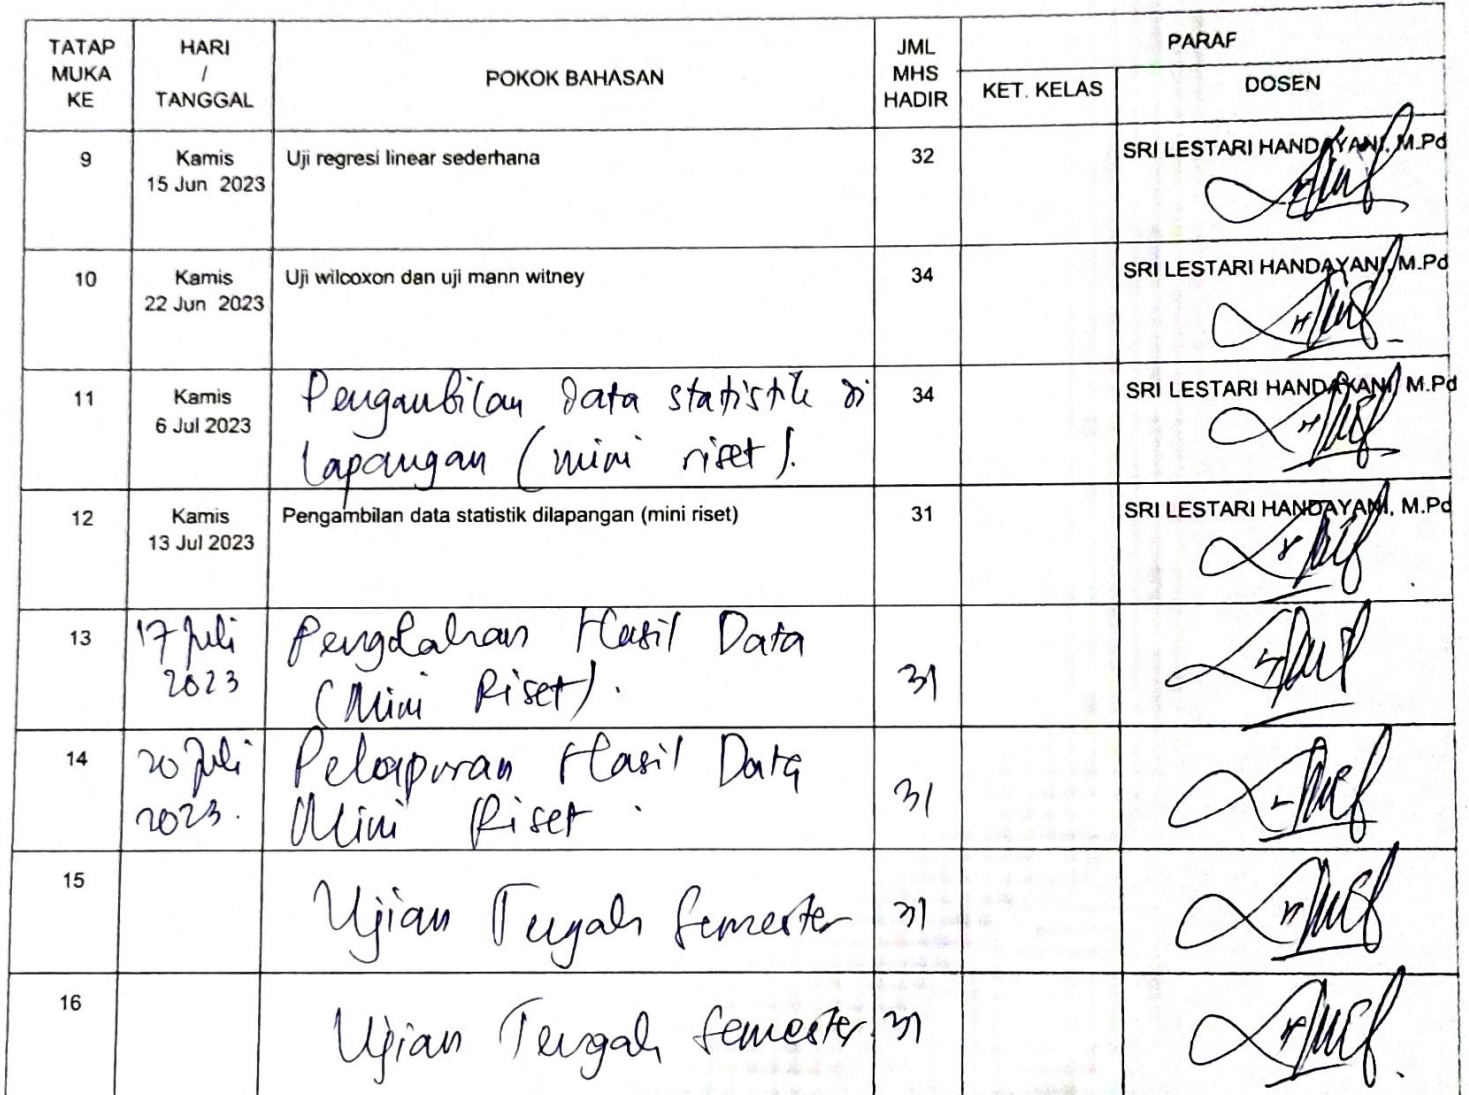 TATAP MUKA KE
HARI / TANGGAL
POKOK BAHASAN
JML MHS HADIR
PARAF
KET. KELAS
DOSEN
9
Kamis
15 Jun 2023
Uji regresi linear sederhana
32
SRI LESTARI HANDAYANI, M.Pd
10
Kamis
22 Jun 2023
Uji wilcoxon dan uji mann witney
34
SRI LESTARI HANDAYANI, M.Pd
11
Kamis
6 Jul 2023
Pengambilan data statistik di
lapangan (mini riset).
34
SRI LESTARI HANDAYANI, M.Pd
12
Kamis
13 Jul 2023
Pengambilan data statistik dilapangan (mini riset)
31
SRI LESTARI HANDAYANI, M.Pd
13
17 Juli
2023
Pengolahan Hasil Data
(Mini Riset).
31
14
20 Juli
2023.
Pelaporan Hasil Data
Mini Riset.
31
15
Ujian Tengah Semester
31
16
Ujian Tengah Semester.
31